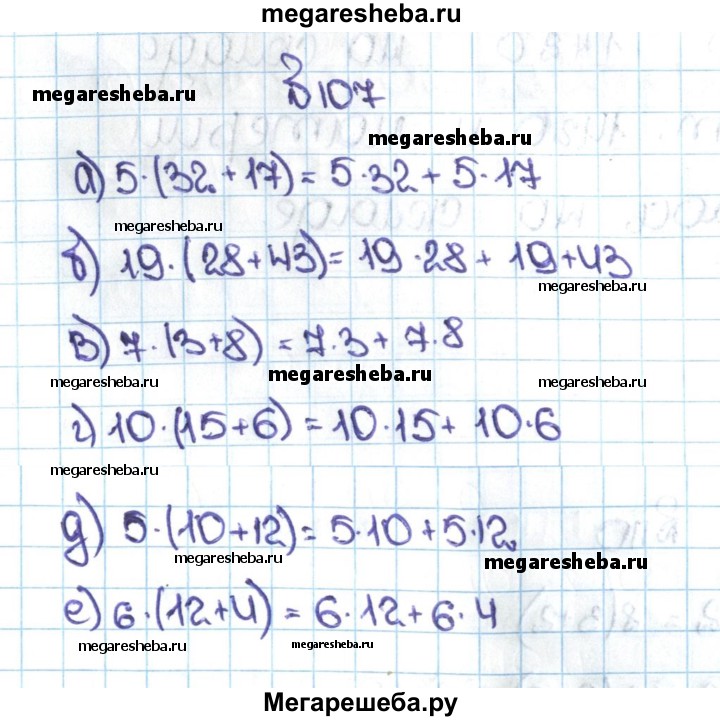 megaresheba.ru
107
megaresheba.ru
megaresheba.ru
а) 5·(32+17)=5·32+5·17
megaresheba.ru
б) 19·(28+43)=19·28+19+43
megaresheba.ru
в) 7·(3+8)=7·3+7·8
megaresheba.ru
megaresheba.ru
megaresheba.ru
г) 10·(15+6)=10·15+10·6
megaresheba.ru
д) 5·(10+12)=5·10+5·12
megaresheba.ru
megaresheba.ru
е) 6·(12+4)=6·12+6·4
megaresheba.ru
megaresheba.ru
Мегарешеба.ру